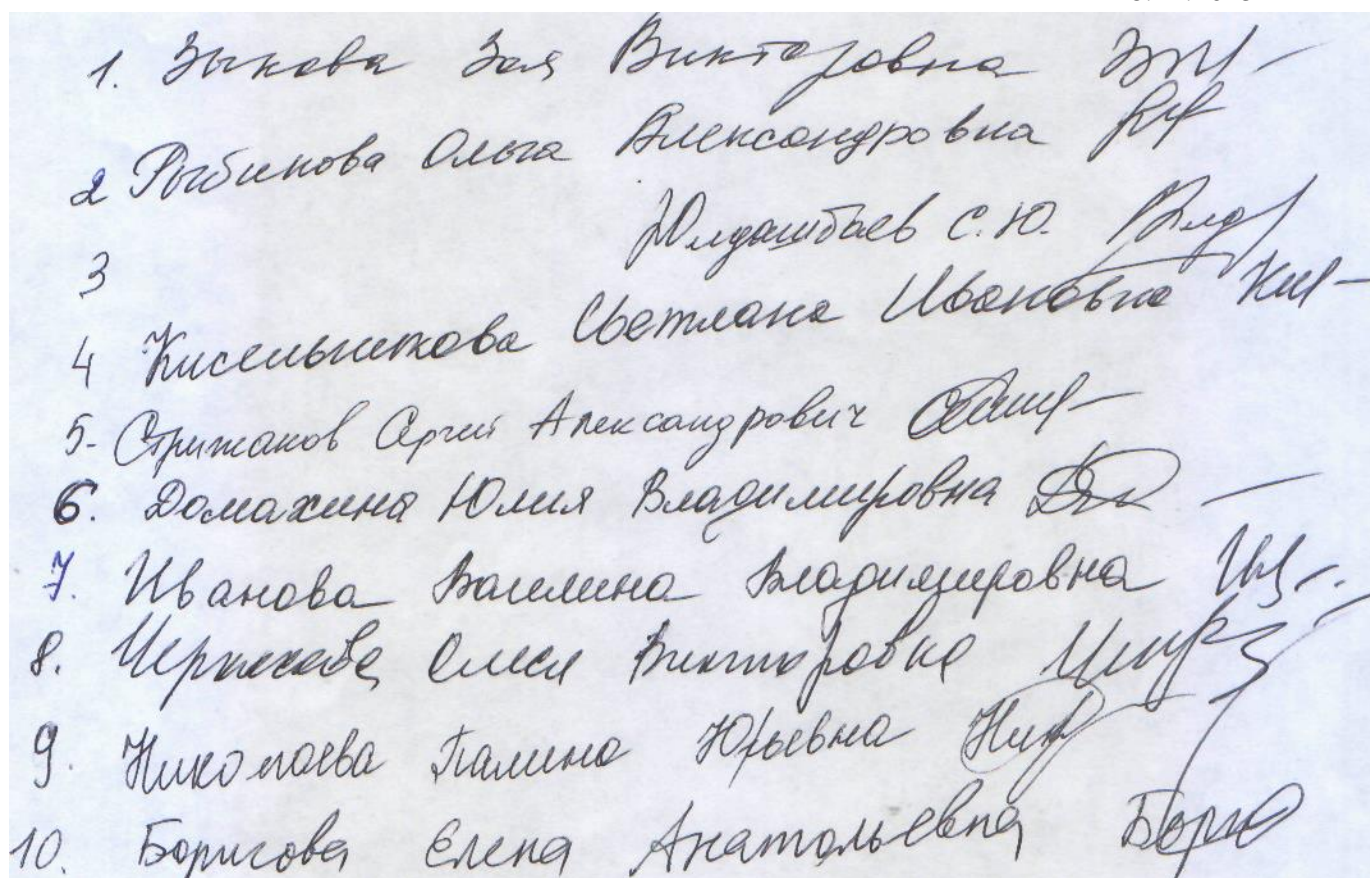 1. Зыкова Зоя Викторовна
2 Рыбинова Ольга Александровна
3 Юлдашбаев С.Ю.
4 Кисельникова Светлана Ивановна
5- Стрижаков Сергей Александрович
6. Домахина Юлия Владимировна
7. Иванова Владимировна
8. Олеся Викторовна
9. Николаева Галина Юрьевна
10. Борисова Елена Анатольевна